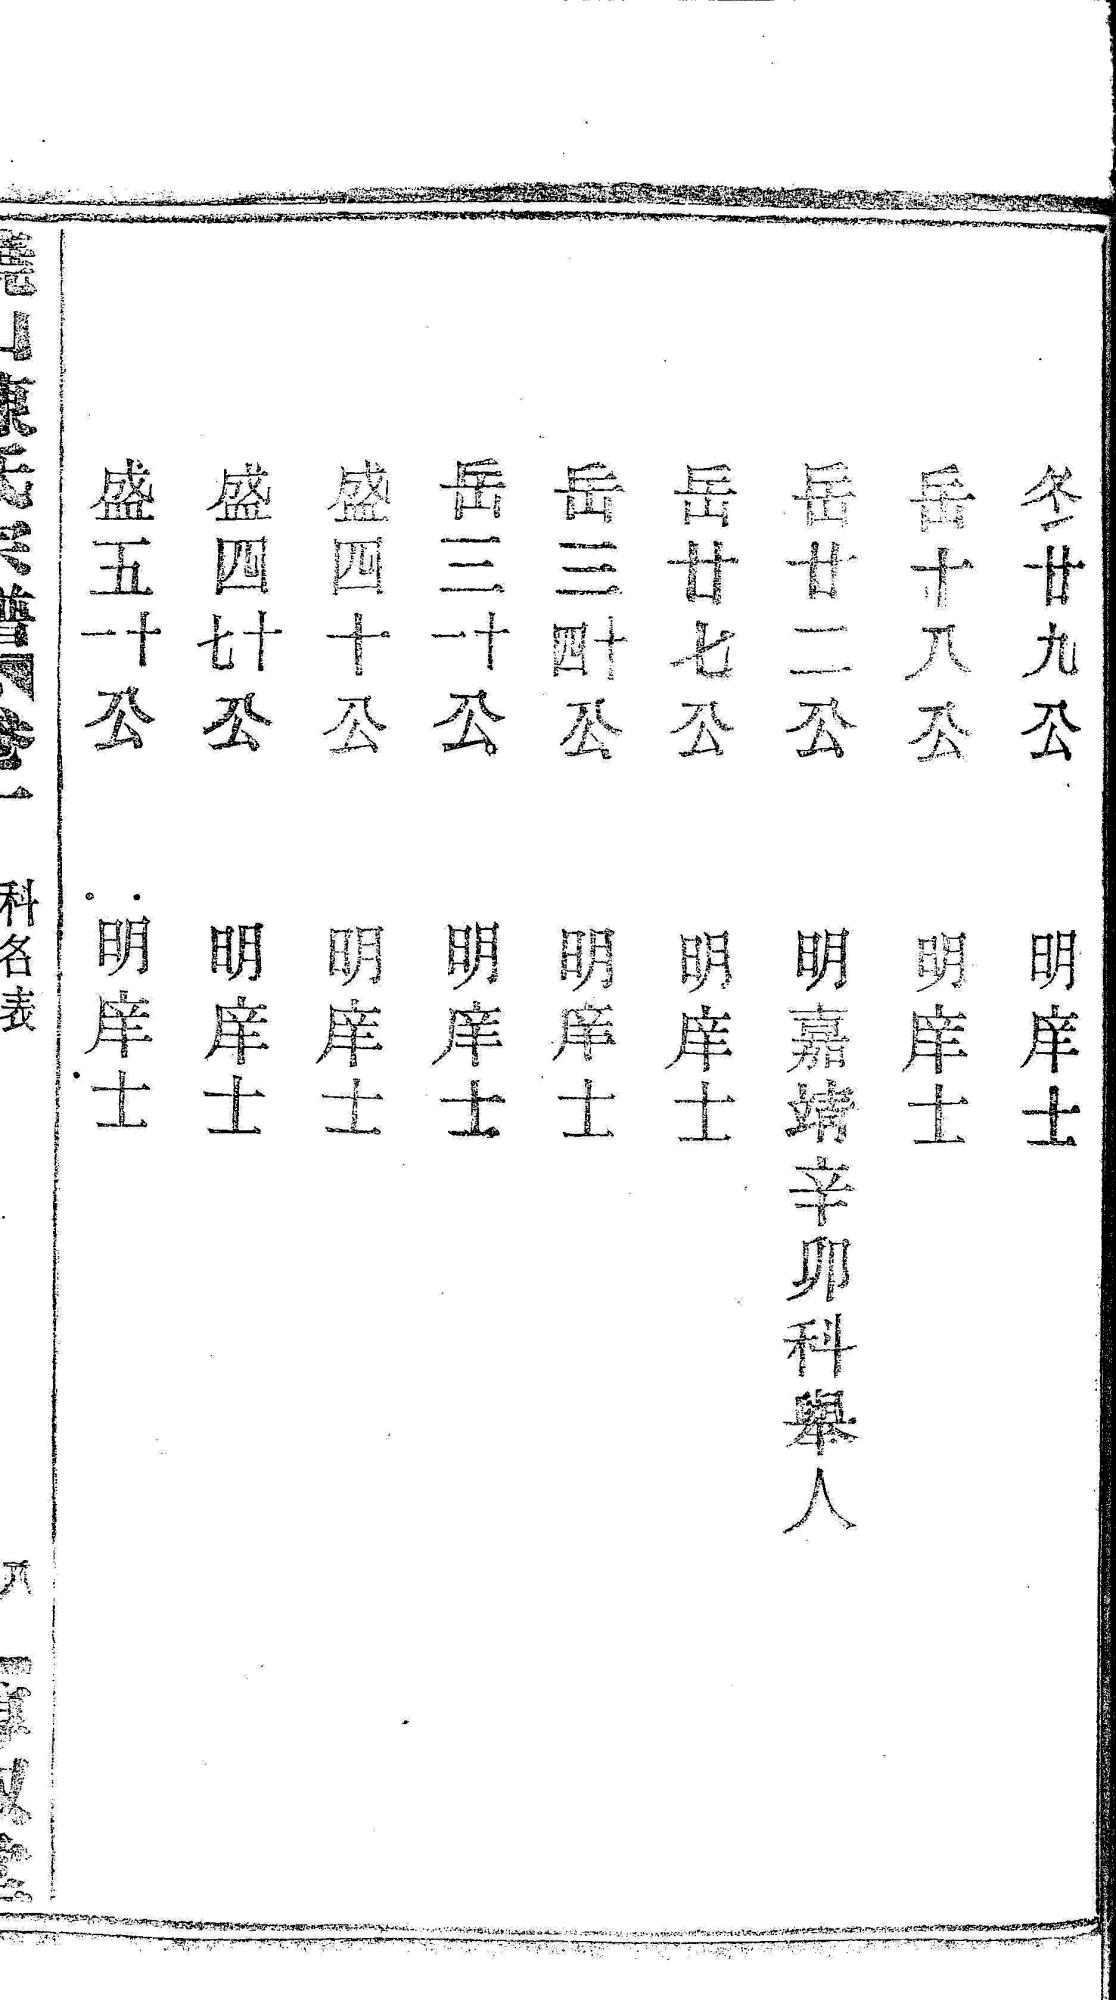 廿九公 明庠士
岳十八公 明庠士
岳廿二公 明嘉靖辛卯科舉人
岳廿七公 明庠士
岳三十四公 明庠士
岳三十一公 明庠士
盛四十公 明庠士
盛四十七公 明庠士
盛五十一公 明庠士
山陳氏宗譜 卷一 科名表 八 敦堂